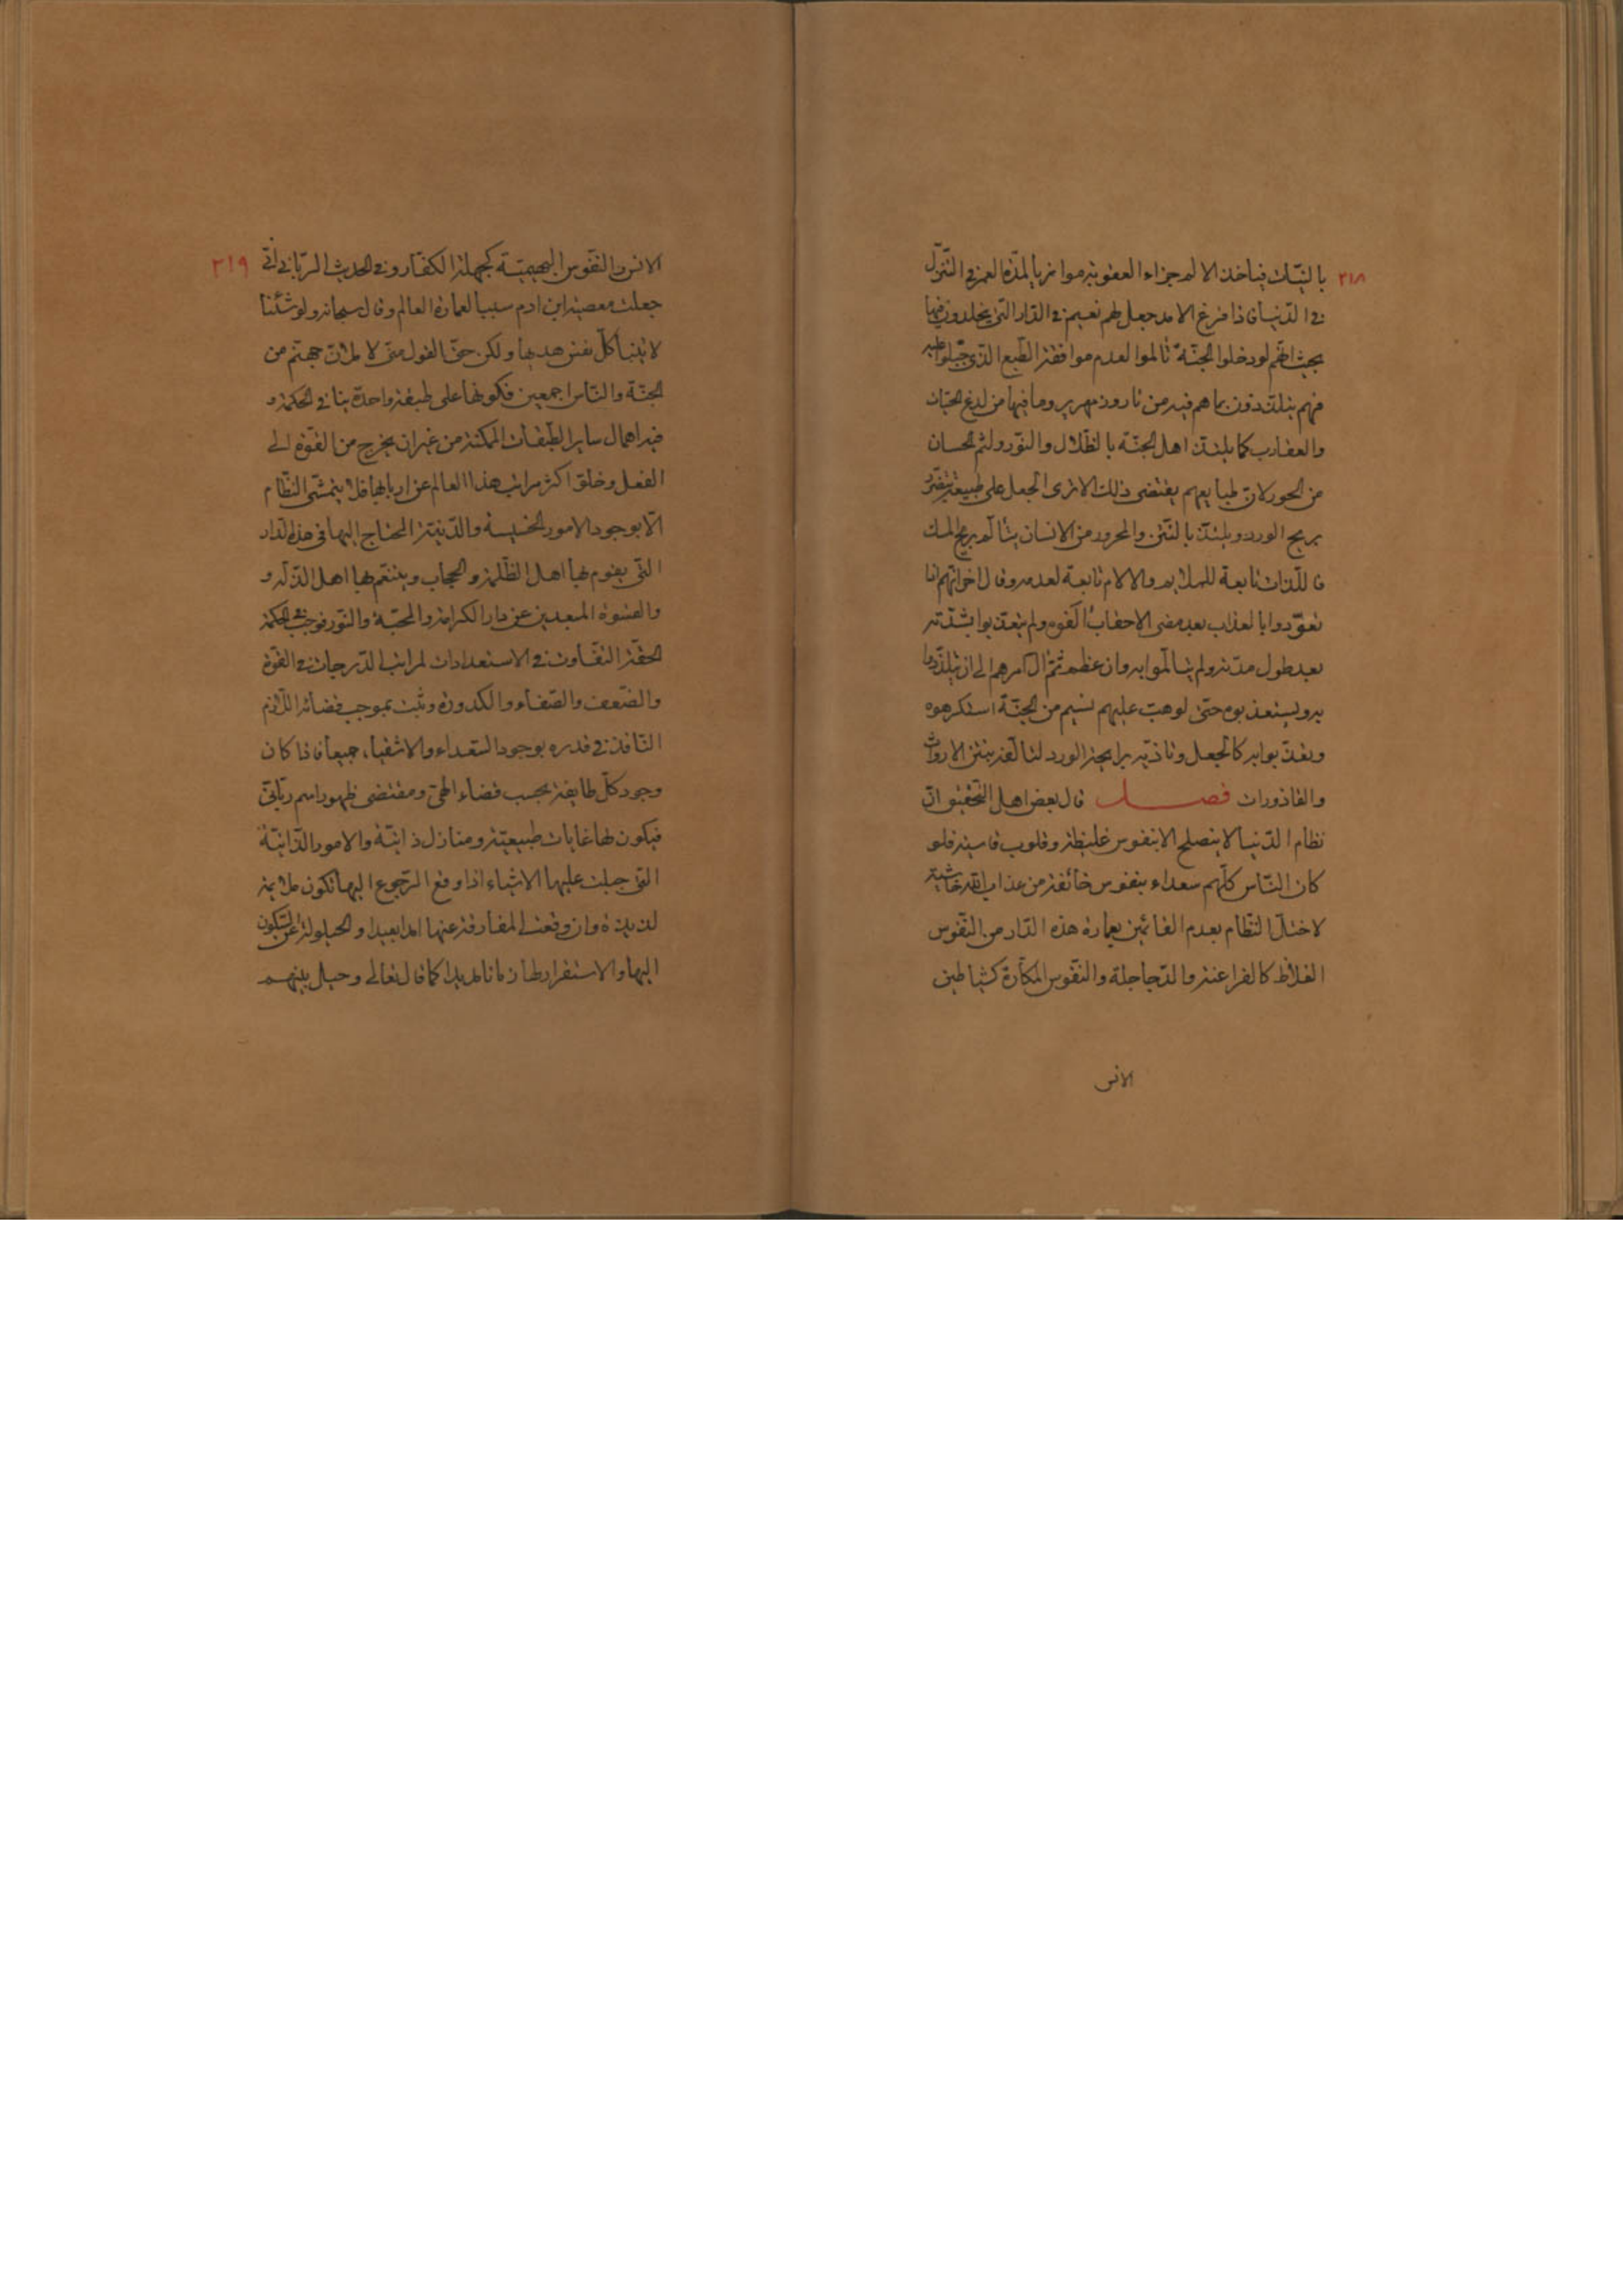 ٣١٨
بالنيّات فياخذ الالم جزاء العقوبة موازيا لمدّة العمر في التنزل
في الدّنيا فاذا فرغ الامد جعل لهم نعيم في الدّار التى يخلدون فيها
بحيث انّهم لو دخلوا الجنّة تالموا لعدم موافقة الطّبع الذى جبّلوا عليه
فهم يتلذذون بما هم فيه من نار وزمهرير وما فيها من لدغ الحيّات
والعقارب كما يلتذ اهل الجنّة بالظّلال والنّور ولثم الحسان
من الحور لانّ طبايعهم يقتضى ذلك الا ترى الجعل على طبيعة يتضرّر
بريح الورد ويلتذّ بالنّتن والمحرور من الانسان يتالّم بريح المسك
فاللّذات تابعة للملايم والالام تابعة لعدمه وقال اخر انّهم لمّا
تعوّدوا بالعذاب بعد مضى الاحقاب الّفوه ولم يتعذّبوا بشدّته
بعد طول مدّته ولم يتالّموا به وان عظم ثمّ آل امرهم الى ان يتلذّذوا
به ويستعذبوه حتى لو هبّ عليهم نسيم من الجنّة استكرهوه
وتعذّبوا به كالجعل وتاذّيه برايحة الورد لتالّفه بنتن الارواث
والقاذورات فصل قال بعض اهل التّحقيق انّ
نظام الدّنيا لا ينصلح الا بنفوس غليظة وقلوب قاسية فلو
كان النّاس كلّهم سعداء بنفوس خائفة من عذاب الله خاشية
لاختلّ النّظام بعدم القائمين بعمارة هذه الدّار من النّفوس
الغلاظ كالفراعنة والدّجاجلة والنّفوس المكّارة كشياطين
الانس
٣١٩
الانس والنّفوس البهيميّة كجهلة الكفّار وفي الحديث الربّانى انّى
جعلت معصية ابن ادم سببا لعمارة العالم وقال سبحانه ولو شئنا
لاتينا كلّ نفس هديها ولكن حقّ القول منّى لاملانّ جهنّم من
الجنّة والنّاس اجمعين فكونها على طبقة واحدة ينافى الحكمة و
فيه اهمال ساير الطّبقات الممكنة من غير ان يخرج من القوّة الى
الفعل وخلق اكثر مراتب هذا العالم عن اربابها فلا يتمشّى النّظام
الّا بوجود الامور الخسيسة والدّنيّة المحتاج اليها فى هذه الدّار
التى يقوم بها اهل الظّلمة والحجاب ويتنعّم بها اهل الذّلّة و
والقسوة المبعدين عن دار الكرامة والمحبّة والنّور فوجب فى الحكمة
الحقّة التّفاوت في الاستعدادات لمراتب الدّرجات في القوّة
والضّعف والصّفاء والكدورة وثبت بموجب قضائه اللّازم
النّافذ في قدره بوجود السّعداء والاشقياء جميعا فاذا كان
وجود كلّ طايفة بحسب قضاء الهىّ ومقتضى ظهور اسم ربّانىّ
فيكون لها غايات طبيعيّة ومنازل ذاتيّة والامور الذّاتيّة
التى جبلت عليها الاشياء اذا وقع الرّجوع اليها تكون ملايمة
لذيذة وان وقعت المفارقة عنها امدا بعيدا والحيلولة عن السّكون
اليها والاستقرار لها زمانا مديدا كما قال تعالى وحيل بينهم